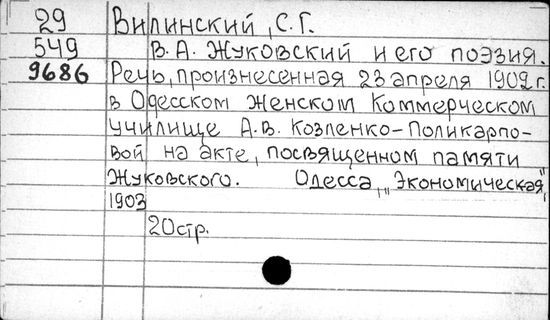 29 Вилинский, С.Г.
549 В.А. Жуковский и его поэзия.
9686 Речь, произнесенная 23 апреля 1902 г.
в Одесском Женском Коммерческом
училище А.В. Козленко-Поликарпо-
вой на акте, посвященном памяти
Жуковского. Одесса, „Экономическая",
1903
20стр.